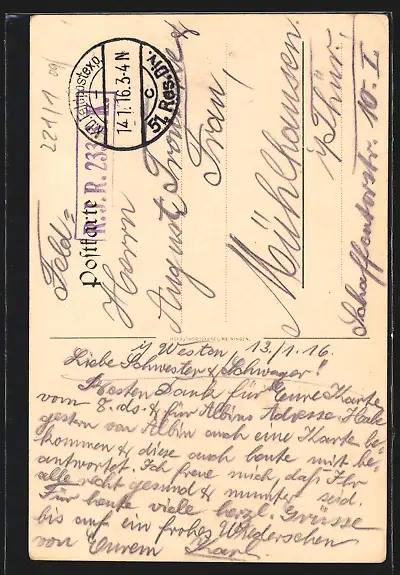 Feld-
Postkarte
K.D. Feldpostexp.
14.1.16.3-4 N
c
51. Res.-Div.
R.J.R. 233
Herrn
August
Frau,
Mühlhausen
i/Thür.,
10. I.
i/ Westen, 13./1. 16.
Liebe Schwester & Schwager!
Besten Dank für Eure Karte
vom 8. ds. & für Albins Adresse. Habe
gestern von Albin auch eine Karte be-
kommen & diese auch heute mit be-
antwortet. Ich freue mich, daß Ihr
alle recht gesund & munter seid.
Für heute viele herzl. Grüsse
bis auf ein frohes Wiedersehen
von Eurem Karl.